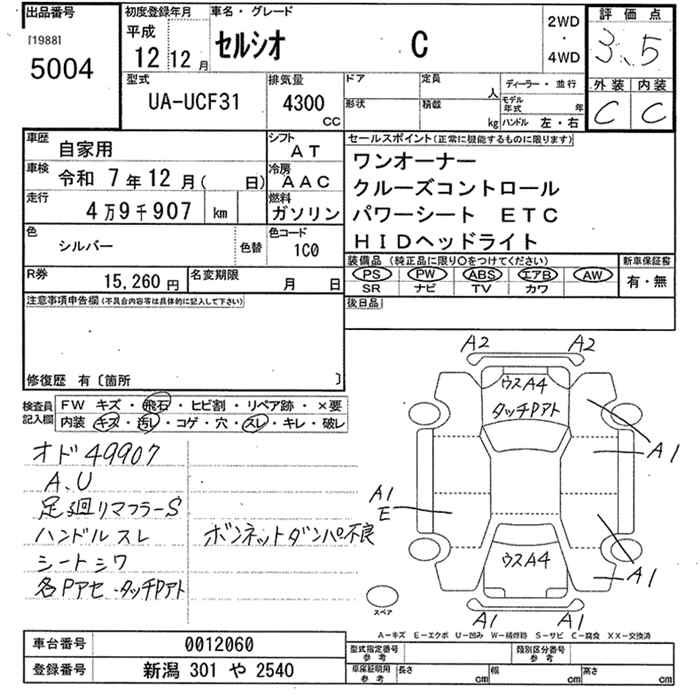 出品番号
[1988]
5004
初度登録年月
平成
12 12月
車名・グレード
セルシオ C
2WD
・
4WD
評価点
3.5
外装 内装
C C
型式
UA-UCF31
排気量
4300
CC
ドア
定員
人
形状
積載
kg
ディーラー・並行
モデル年式 年
ハンドル 左・右
車歴
自家用
シフト
AT
車検
令和 7年12月( 日)
冷房
AAC
走行
4万9千907 km
燃料
ガソリン
色
シルバー
色替
色コード
1C0
R券
15,260円
名変期限
月 日
セールスポイント(正常に機能するものに限ります)
ワンオーナー
クルーズコントロール
パワーシート ETC
HIDヘッドライト
装備品 (純正品に限り〇をつけてください)
PS PW ABS エアB AW
SR ナビ TV カワ
新車保証書
有・無
後日品
注意事項申告欄(不具合内容等は具体的に記入して下さい)
修復歴 有〔箇所 〕
検査員記入欄
FW キズ・飛石・ヒビ割・リペア跡・×要
内装 キズ・汚レ・コゲ・穴・スレ・キレ・破レ
オド 49907
A.U
足廻リマフラーS
ハンドルスレ
シートシワ
各Pアセ・タッチPアト
ボンネットダンパ不良
A2 A2
ウスA4
タッチPアト
A1
A1
E
ウスA4
A1
A1 A1
スペア
A-キズ E-エクボ U-凹み W-補修跡 S-サビ C-腐食 XX-交換済
車台番号
0012060
登録番号
新潟 301 や 2540
型式指定番号
参考
類別区分番号
参考
車庫証明用
参考
長さ cm
幅 cm
高さ cm